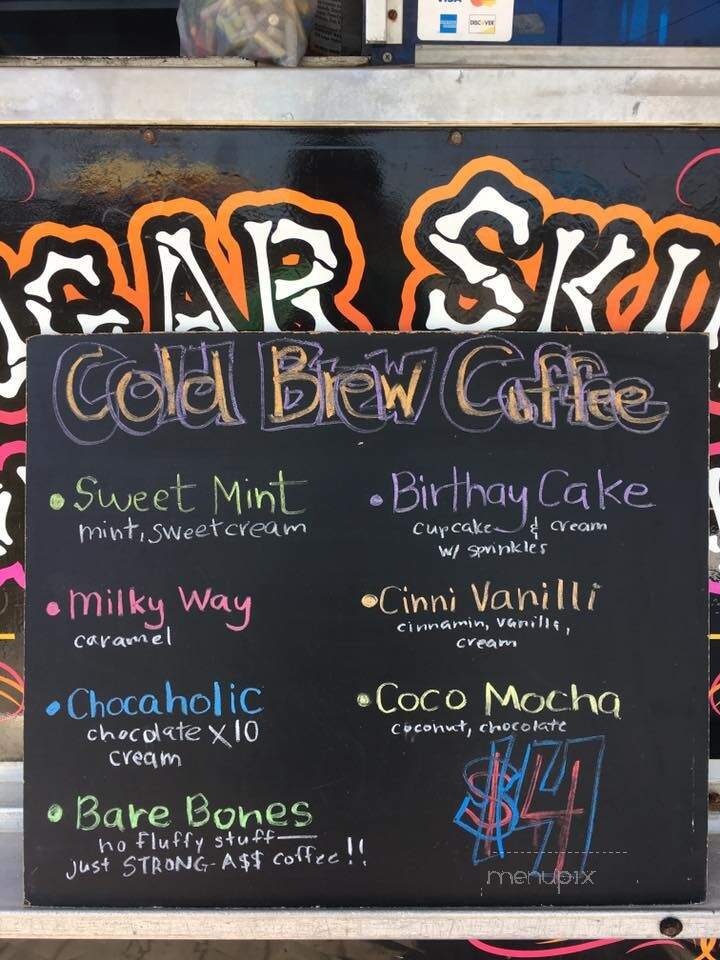 VISA
DISCOVER
GAR SKU
Cold Brew Coffee
• Sweet Mint
mint, sweetcream
• Milky Way
caramel
• Chocaholic
chocolate x10
cream
• Bare Bones
no fluffy stuff—
just STRONG-A$$ coffee!!
• Birthay Cake
cupcake & cream
w/ sprinkles
• Cinni Vanilli
cinnamin, vanilla,
cream
• Coco Mocha
coconut, chocolate
$4
menupix